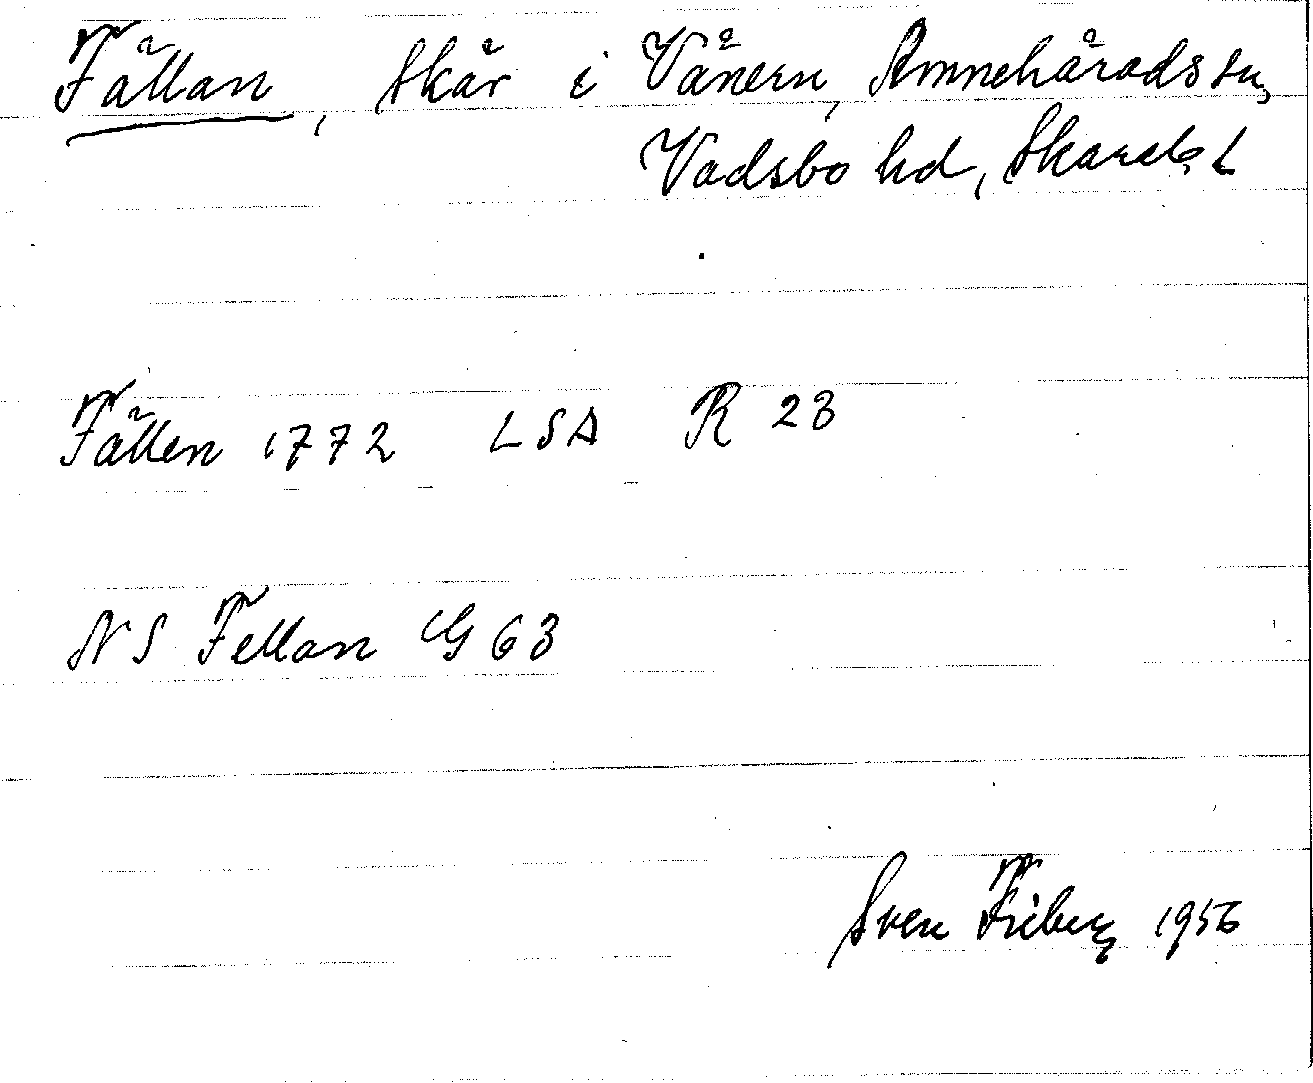 Fällan, Skär i Vänern, Amnehärads sn,
Vadsbo hd, Skarab. L
Fällen 1772 LSA R 23
NS Fellan G 63
Sven Friberg 1956